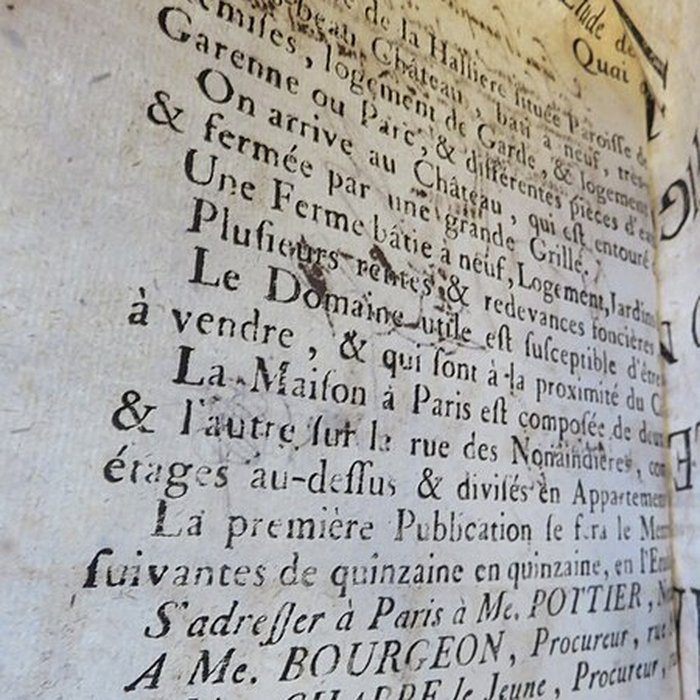 Etude de
Quai
de la Hassiere située Paroisse de
beau Château, bati à neuf, très-
remises, logement de Garde, & logement
Garenne ou Parc, & différentes pièces d'eau
On arrive au Château, qui est entouré
& fermée par une grande Grille.
Une Ferme bâtie à neuf, Logement, Jardins
Plusieurs rentes & redevances foncières
Le Domaine utile est susceptible d'être
à vendre, & qui sont à la proximité du C
La Maison à Paris est composée de deux
& l'autre sur la rue des Nonaindieres, con
étages au-dessus & divisés en Appartemen
La première Publication se fera le Mer
suivantes de quinzaine en quinzaine, en l'E
S'adresser à Paris à Me. POTTIER, N
A Me. BOURGEON, Procureur, rue
le Jeune, Procureur,